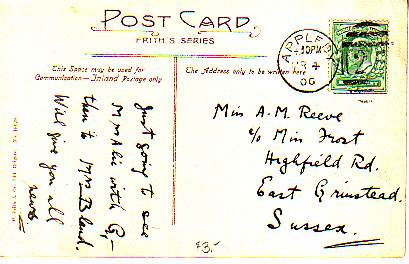 POST CARD
FRITH'S SERIES
This Space may be used for
Communication—Inland Postage only
The Address only to be written here
APPLEBY
4
06
Just going to see
with G,—
then to Mrs Bland.
Will give you all
news.
Miss A. M. Reeve
c/o Miss Frost
Highfield Rd.
East Grinstead.
Sussex.
£3.-